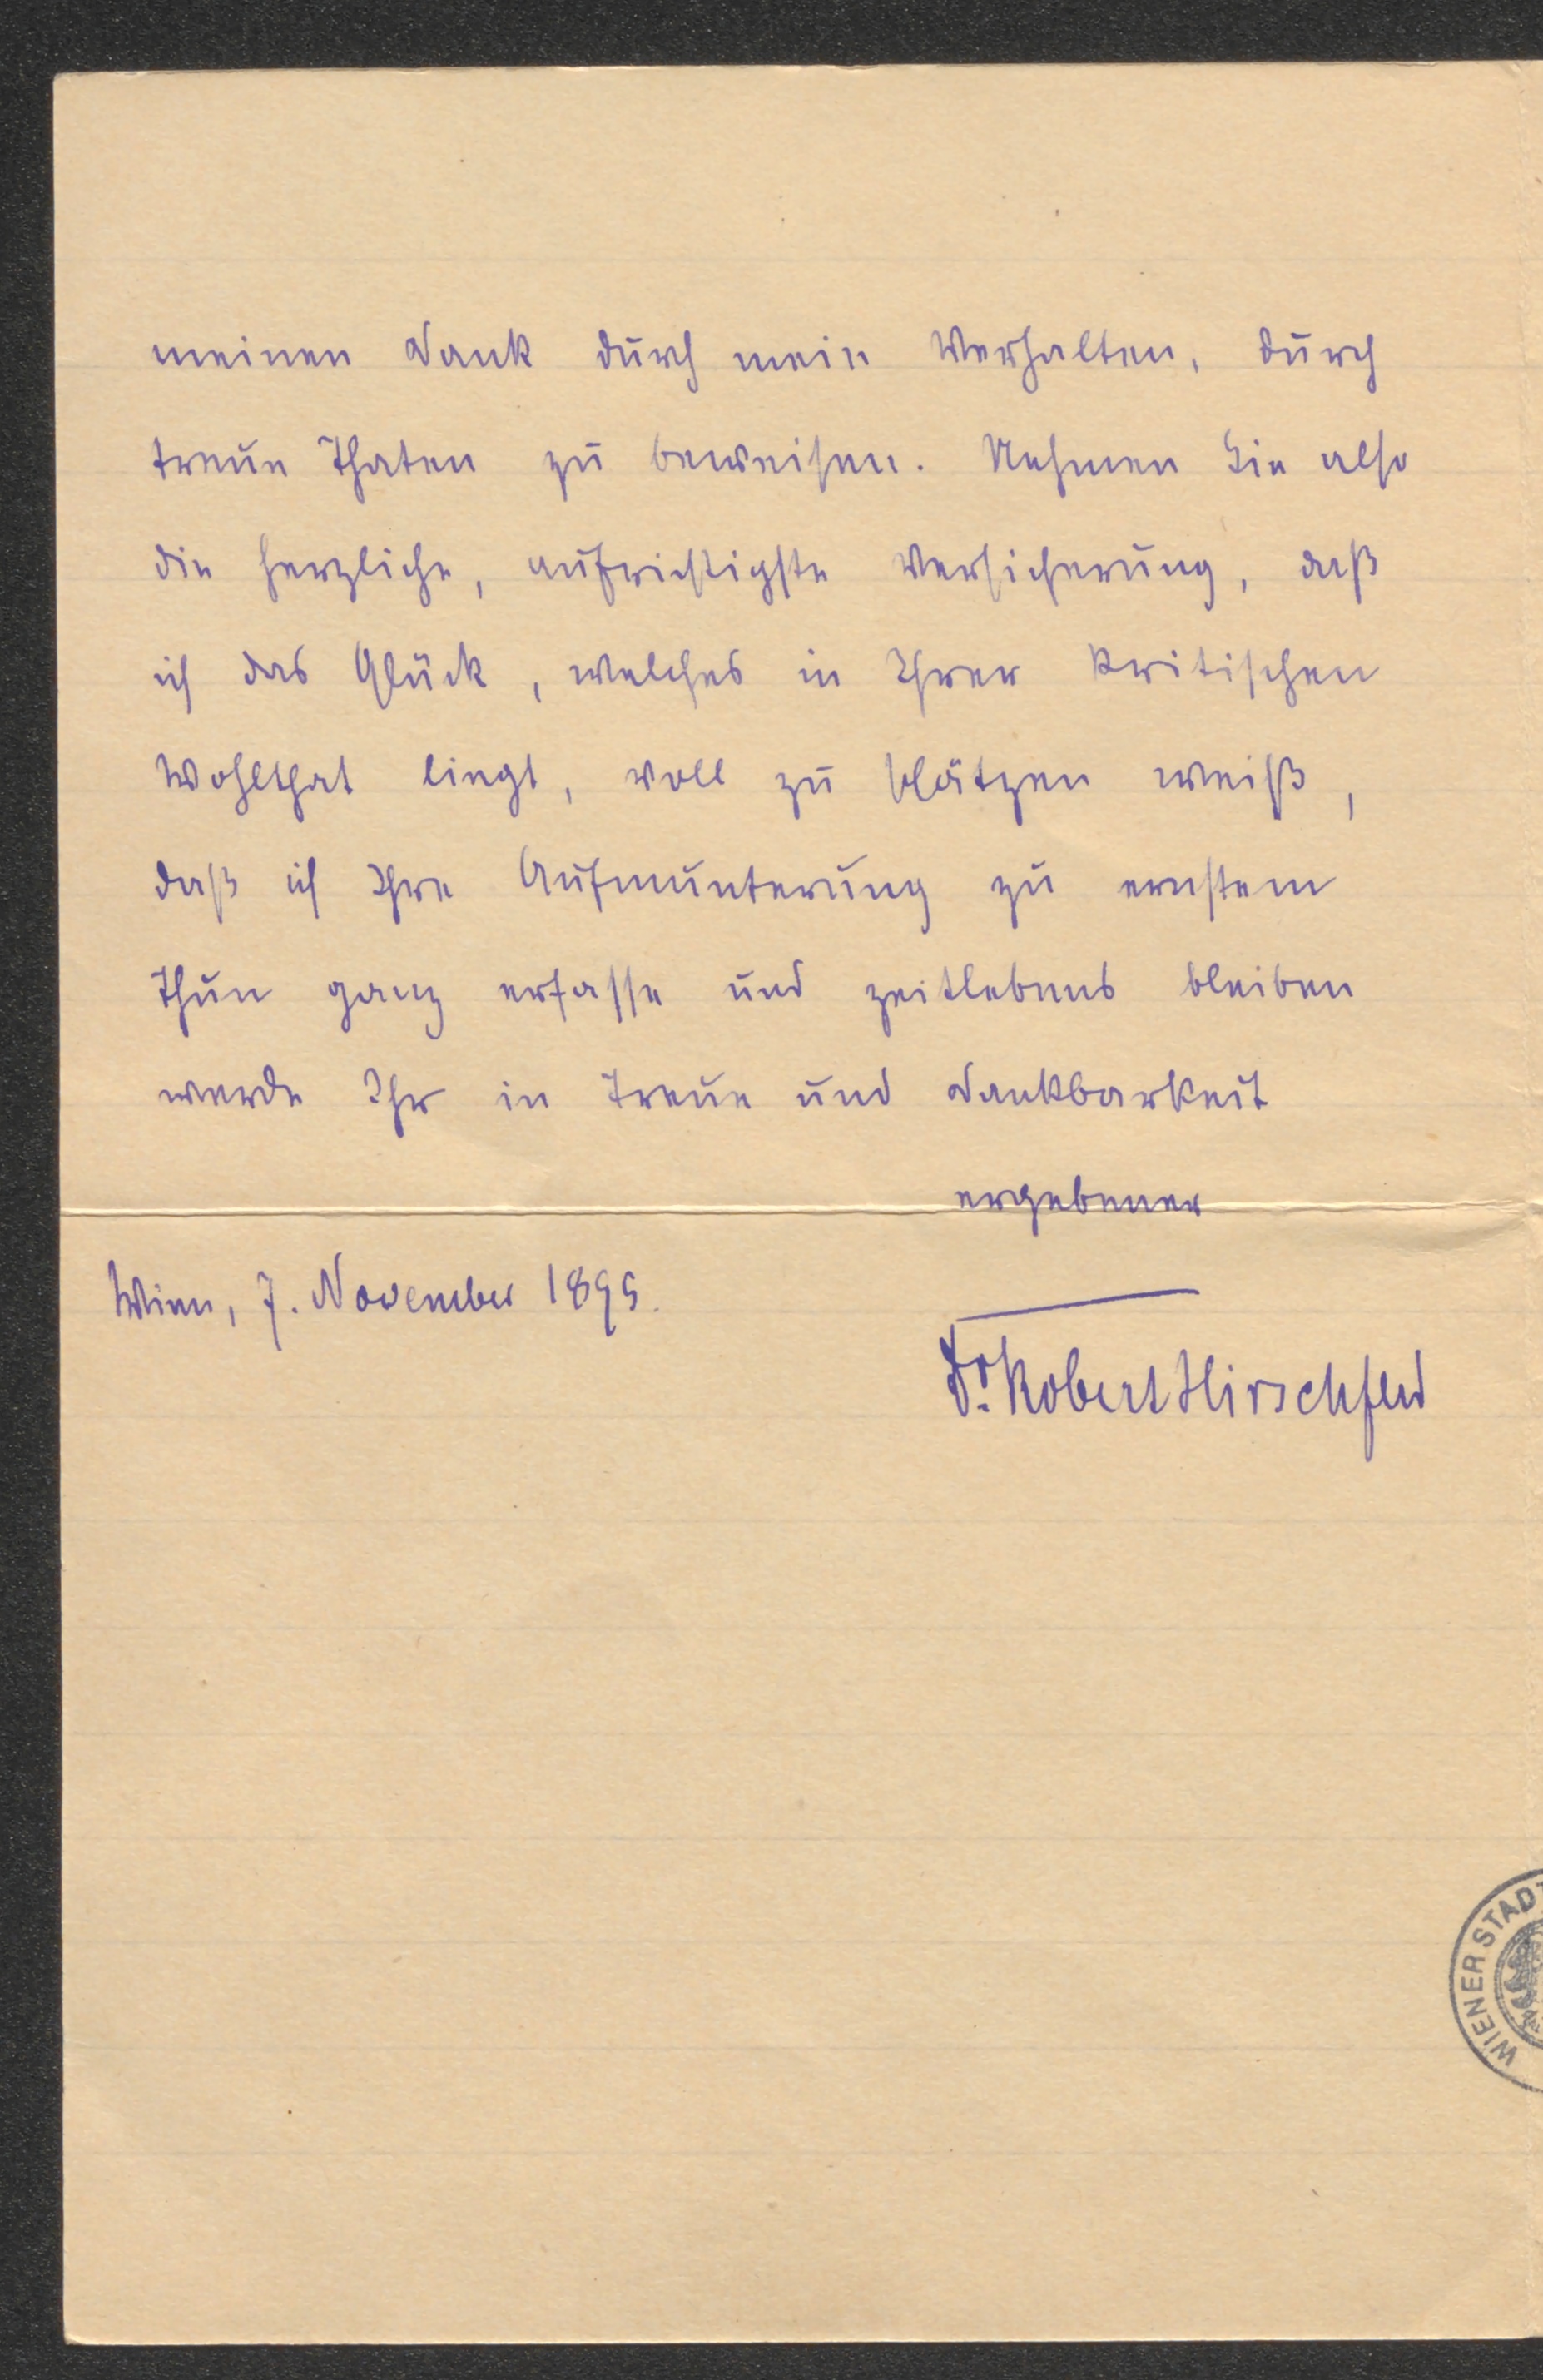 meinen Dank durch mein Verhalten, durch
treue Thaten zu beweisen. Nehmen Sie also
die herzliche, aufrichtigste Versicherung, daß
ich das Glück, welches in Ihrer kritischen
Wohlthat liegt, voll zu schätzen weiß,
daß ich Ihre Aufmunterung zu ernstem
Thun ganz erfasse und zeitlebens bleiben
werde Ihr in Treue und Dankbarkeit
ergebener
Wien, 7. November 1895.
Dr. Robert Hirschfeld
WIENER STADT